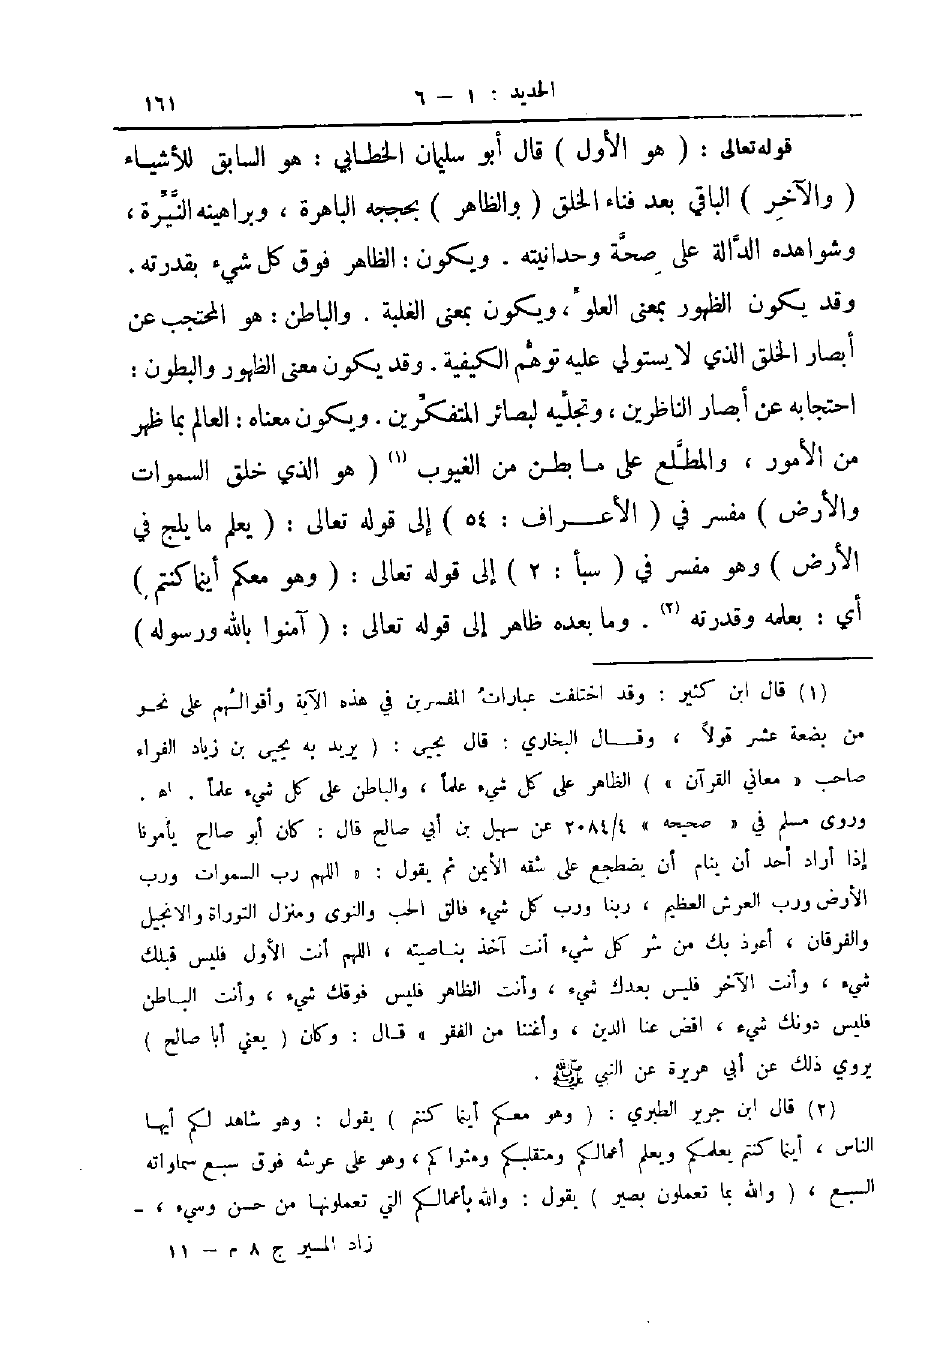 الحديد : ١ – ٦
١٦١
قوله تعالى : ( هو الأول ) قال أبو سليمان الخطابي : هو السابق للأشياء
( والآخِر ) الباقي بعد فناء الخلق ( والظاهر ) بحججه الباهرة ، وبراهينه النَّيِّرة ،
وشواهده الدَّالة على صحَّة وحدانيته . ويكون : الظاهر فوق كل شيء بقدرته .
وقد يكون الظهور بمعنى العلوِّ ، ويكون بمعنى الغلبة . والباطن : هو المحتجب عن
أبصار الخلق الذي لا يستولي عليه توهُّم الكيفية . وقد يكون معنى الظهور والبطون :
احتجابه عن أبصار الناظرين ، وتجلِّيه لبصائر المتفكِّرين . ويكون معناه : العالم بما ظهر
من الأمور ، والمطَّلع على ما بطن من الغيوب (١) ( هو الذي خلق السموات
والأرض ) مفسر في ( الأعراف : ٥٤ ) إلى قوله تعالى : ( يعلم ما يلج في
الأرض ) وهو مفسر في ( سبأ : ٢ ) إلى قوله تعالى : ( وهو معكم أينما كنتم )
أي : بعلمه وقدرته (٢) . وما بعده ظاهر إلى قوله تعالى : ( آمنوا بالله ورسوله )
(١) قال ابن كثير : وقد اختلفت عباراتُ المفسرين في هذه الآية وأقوالُهم على نحو
من بضعة عشر قولاً ، وقال البخاري : قال يحيى : ( يريد به يحيى بن زياد الفراء
صاحب « معاني القرآن » ) الظاهر على كل شيء علماً ، والباطن على كل شيء علماً . اهـ .
وروى مسلم في « صحيحه » ٢٠٨٤/٤ عن سهيل بن أبي صالح قال : كان أبو صالح يأمرنا
إذا أراد أحد أن ينام أن يضطجع على شقه الأيمن ثم يقول : « اللهم رب السموات ورب
الأرض ورب العرش العظيم ، ربنا ورب كل شيء فالق الحب والنوى ومنزل التوراة والانجيل
والفرقان ، أعوذ بك من شر كل شيء أنت آخذ بناصيته ، اللهم أنت الأول فليس قبلك
شيء ، وأنت الآخر فليس بعدك شيء ، وأنت الظاهر فليس فوقك شيء ، وأنت الباطن
فليس دونك شيء ، اقض عنا الدين ، وأغننا من الفقر » قال : وكان ( يعني أبا صالح )
يروي ذلك عن أبي هريرة عن النبي ﷺ .
(٢) قال ابن جرير الطبري : ( وهو معكم أينما كنتم ) يقول : وهو شاهد لكم أيها
الناس ، أينما كنتم يعلمكم ويعلم أعمالكم ومتقلبكم ومثواكم ، وهو على عرشه فوق سبع سماواته
السبع ، ( والله بما تعملون بصير ) يقول : والله بأعمالكم التي تعملونها من حسن وسيء ، –
زاد المسير ج ٨ م – ١١